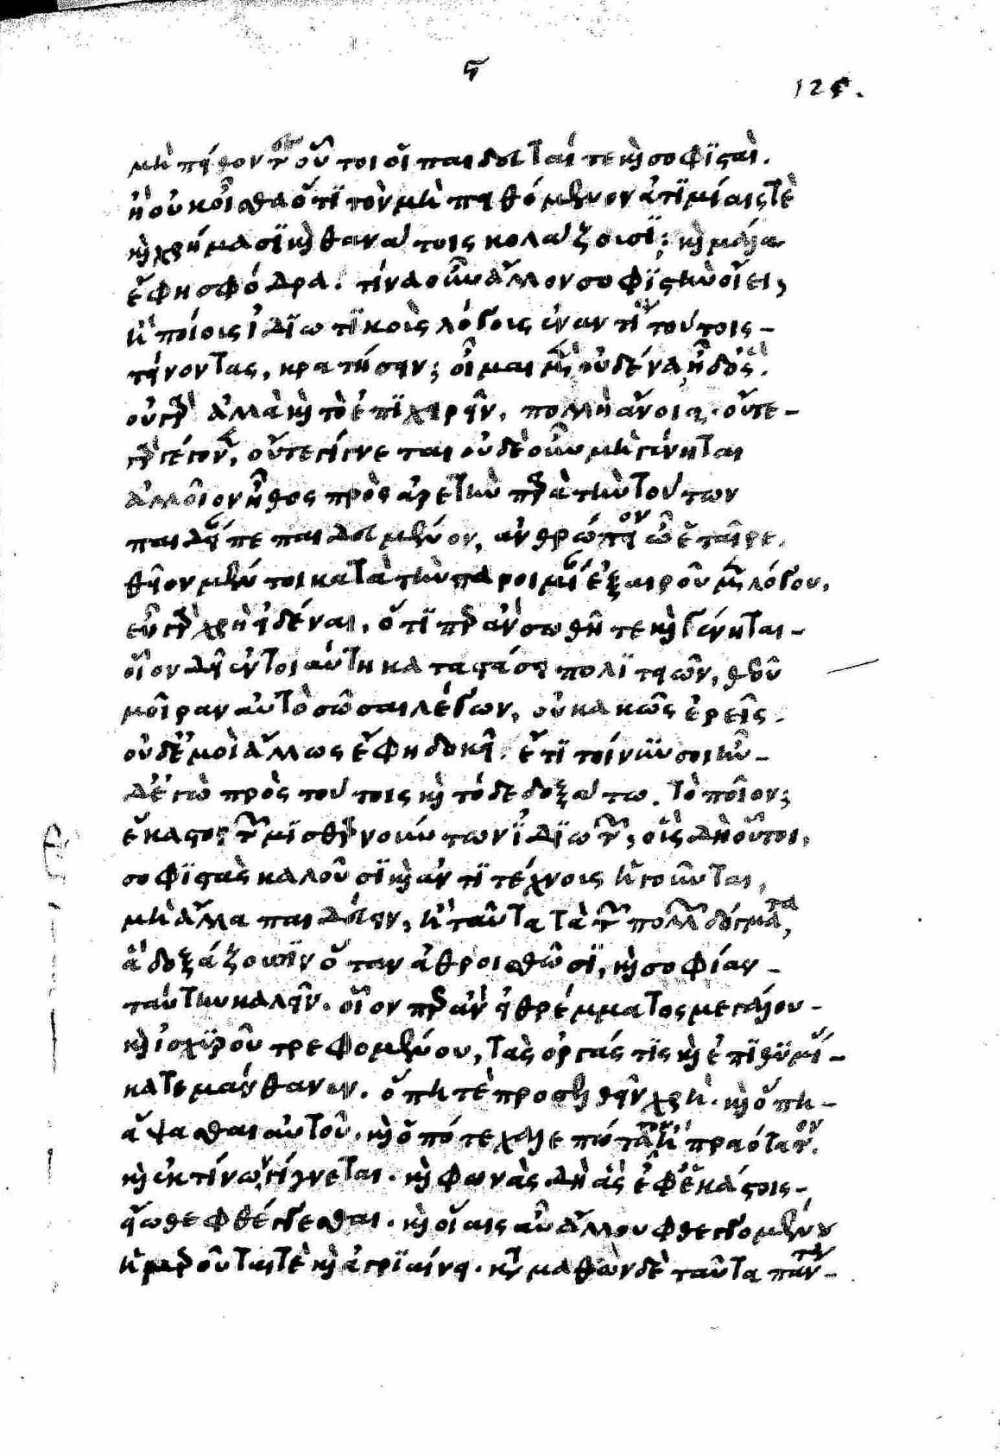 ϛ
125.
μὴ πείθοντες οὗτοι οἱ παιδευταί τε καὶ σοφισταί.
ἢ οὐκ οἶσθα ὅτι τὸν μὴ πειθόμενον ἀτιμίαις τὲ
καὶ χρήμασι καὶ θανάτοις κολάζουσι; καὶ μάλα
ἔφη σφόδρα. τίνα οὖν ἄλλον σοφιστὴν οἴει,
ἢ ποίους ἰδιωτικοὺς λόγους ἐναντία τούτοις
τείνοντας, κρατήσειν; οἶμαι μὲν οὐδένα, ἦ δ' ὅς.
οὐ γὰρ ἀλλὰ καὶ τὸ ἐπιχειρεῖν, πολλὴ ἄνοια. οὔτε
γὰρ γέγονεν, οὔτε γίγνεται οὐδὲ οὖν μὴ γένηται
ἀλλοῖον ἦθος πρὸς ἀρετὴν παρὰ τὴν τούτων
παιδείαν πεπαιδευμένον, ἀνθρώπειον ὦ ἑταῖρε.
θεῖον μέντοι κατὰ τὴν παροιμίαν ἐξαιροῦμεν λόγου.
εὖ γὰρ χρὴ εἰδέναι, ὅ τι περ ἂν σωθῇ τε καὶ γένηται
οἷον δεῖ ἐν τοιαύτῃ καταστάσει πολιτειῶν, θεοῦ
μοῖραν αὐτὸ σῶσαι λέγων, οὐ κακῶς ἐρεῖς.
οὐδ' ἐμοὶ ἄλλως ἔφη δοκεῖ. ἔτι τοίνυν σοι ἦν
δ' ἐγὼ πρὸς τούτοις καὶ τόδε δοξάτω. τὸ ποῖον;
ἕκαστος τῶν μισθαρνούντων ἰδιωτῶν, οὓς δὴ οὗτοι,
σοφιστὰς καλοῦσι καὶ ἀντιτέχνους ἡγοῦνται,
μὴ ἄλλα παιδεύειν, ἢ ταῦτα τὰ τῶν πολλῶν δόγματα,
ἃ δοξάζουσιν ὅταν ἁθροισθῶσι, καὶ σοφίαν
ταύτην καλεῖν. οἷον περ ἂν εἰ θρέμματος μεγάλου
καὶ ἰσχυροῦ τρεφομένου, τὰς ὀργάς τις καὶ ἐπιθυμίας
κατεμάνθανεν. ὅπη τὲ προσελθεῖν χρὴ. καὶ ὅπη
ἅψασθαι αὐτοῦ. καὶ ὁπότε χαλεπώτατον ἢ πραότατον.
καὶ ἐκ τίνων γίγνεται. καὶ φωνὰς δὴ ἃς ἐφ' ἑκάστοις
εἴωθε φθέγγεσθαι. καὶ οἵαις αὖ ἄλλου φθεγγομένου
ἡμεροῦταί τὲ καὶ ἀγριαίνει. καταμαθὼν δὲ ταῦτα πάντα